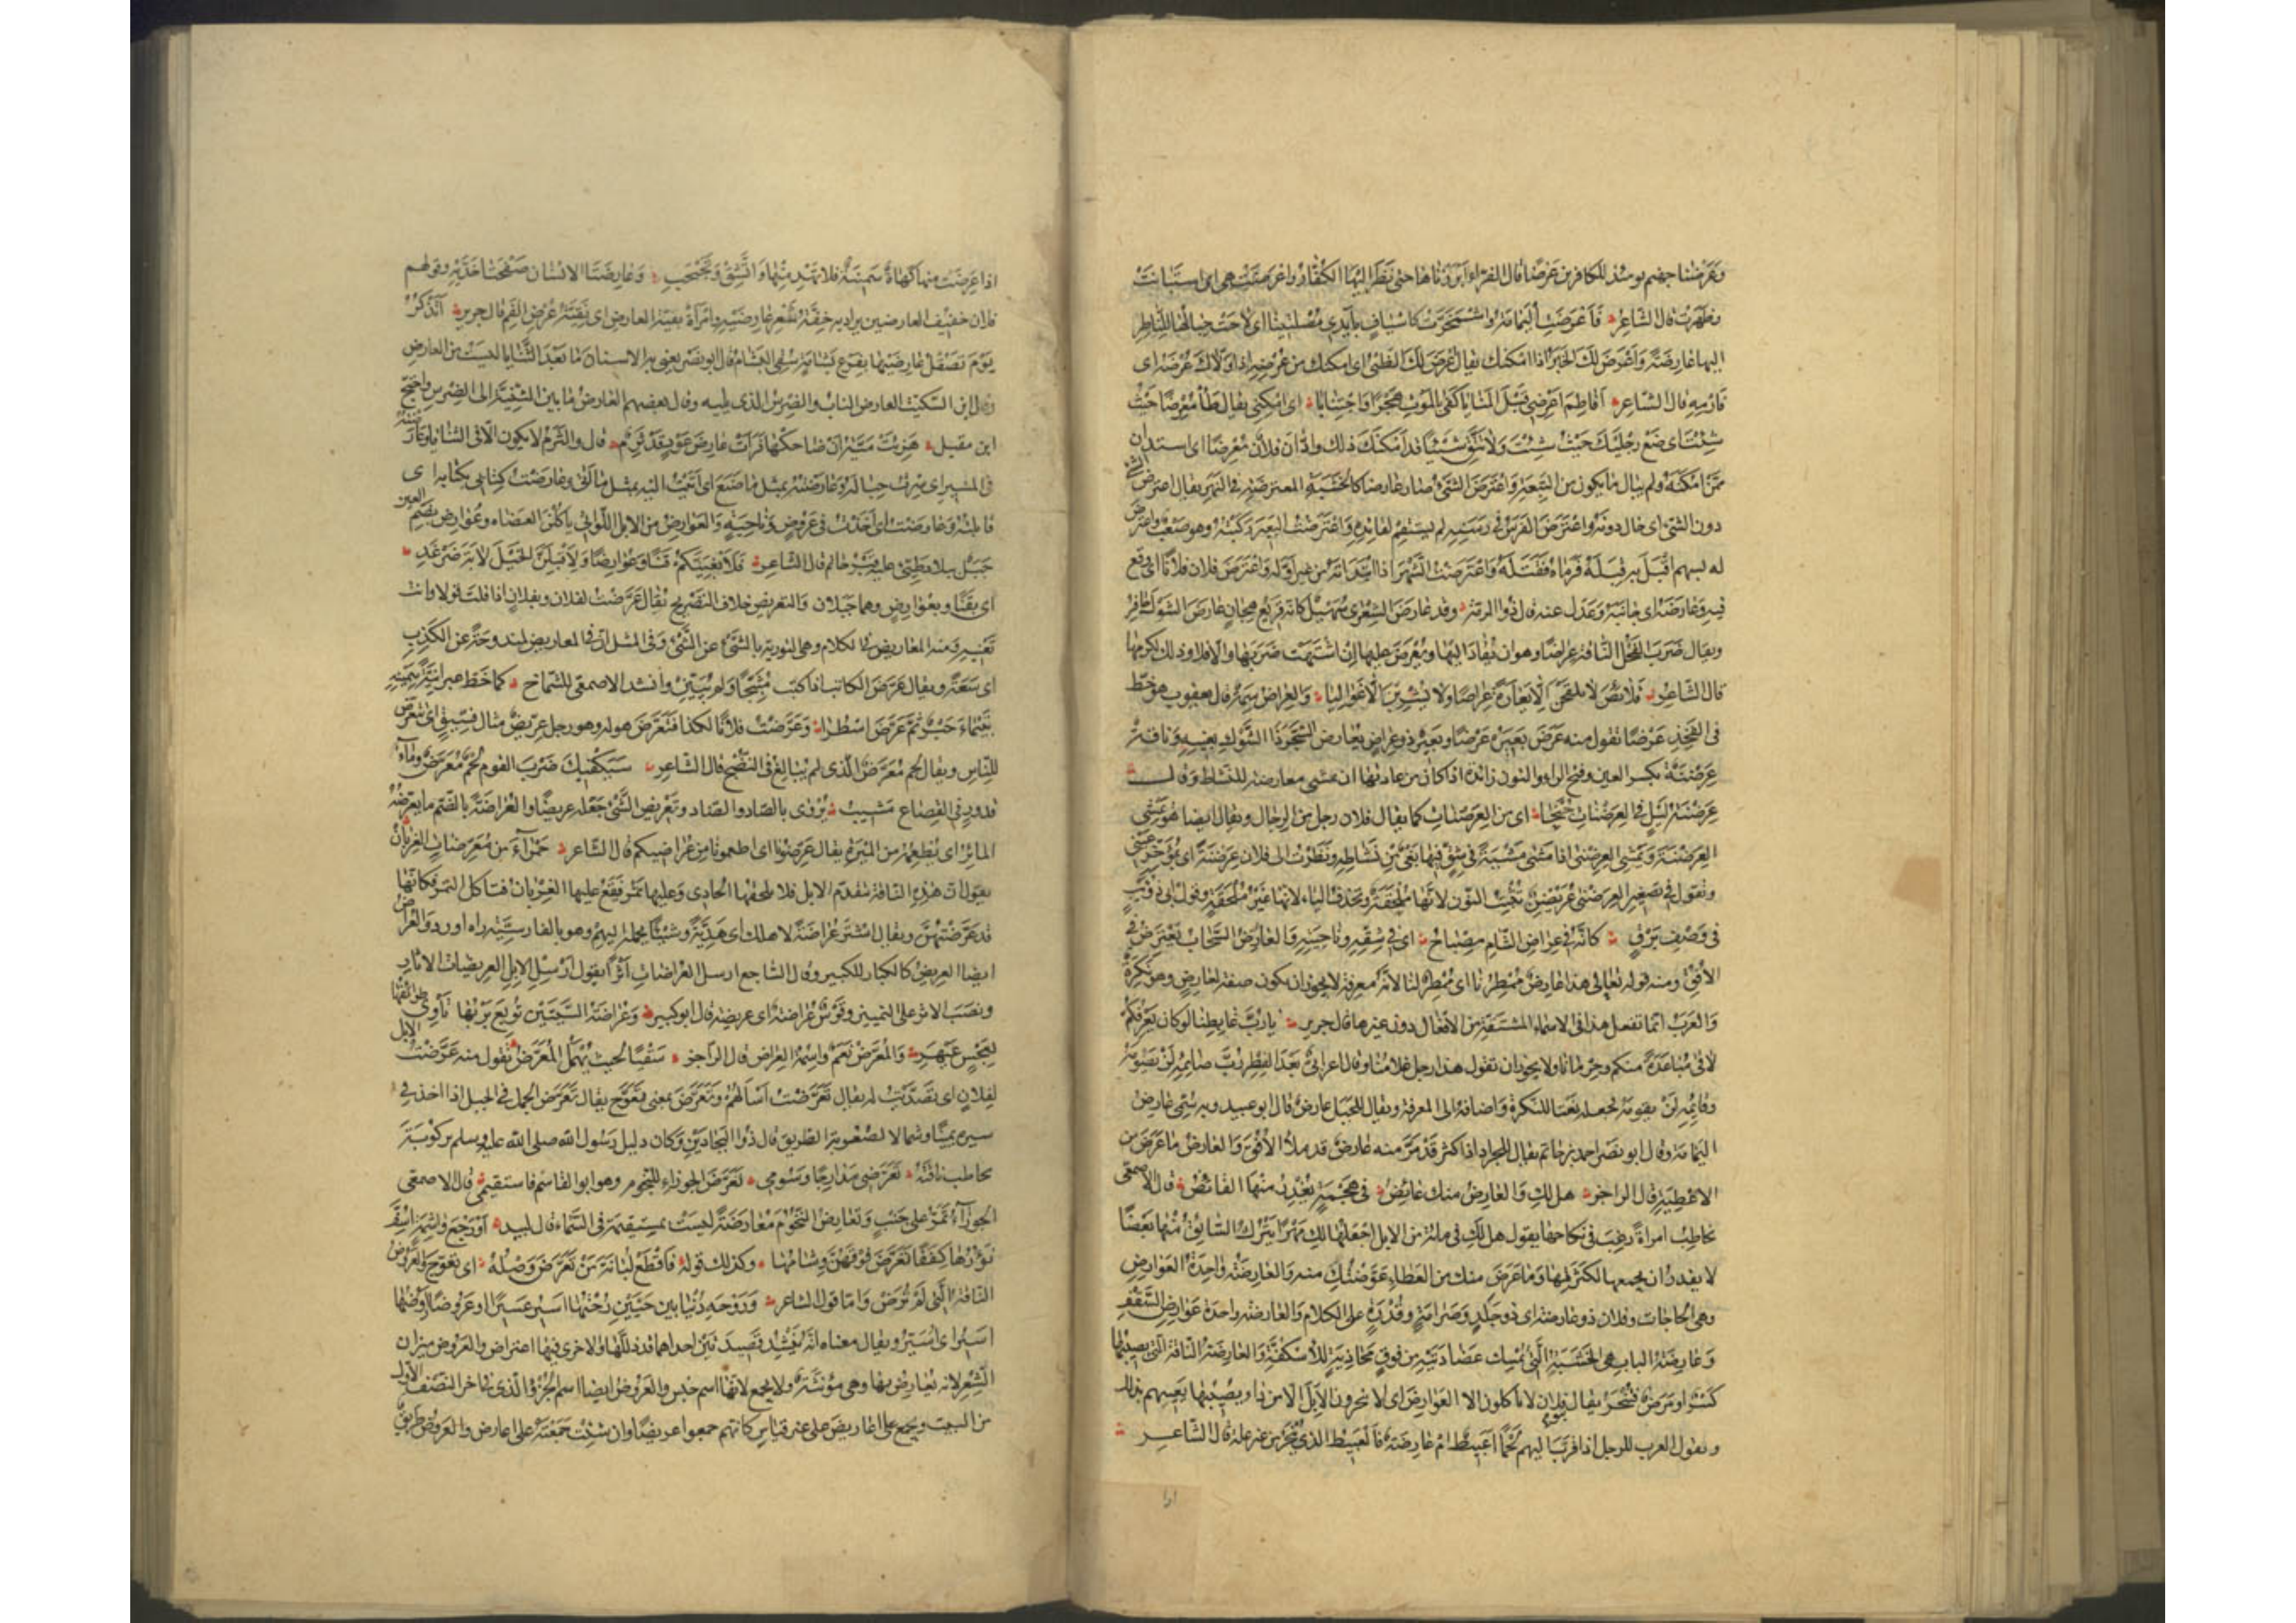 وعرضنا جهنم يومئذ للكافرين عرضا قال الفراء ابرزناها حتى نظر اليها الكفار واعرضت هي اى استبانت
وظهرت قال الشاعر فاعرضت اليمامة واشمخرت كاسياف بايدي مصلتينا اى لاحت جبالها للناظر
اليها عارضة واعرض لك الخير اذا امكنك يقال اعرض لك الظبي اى امكنك من عرضه اذا ولاك عرضه اى
فارمه قال الشاعر افاطم اعرضي قبل المنايا كفى بالموت هجرا واجتنابا اى امكني يقال طأ معرضا حيث
شئت اى ضع رجليك حيث شئت ولا تتق شيئا قد امكنك ذلك وادان فلان معرضا اى استدان
ممن امكنه ولم يبال ما يكون من التبعة واعترض الشئ صار عارضا كالخشبة المعترضة في النهر يقال اعترض الشئ
دون الشئ اى حال دونه واعترض الفرس في رسنه لم يستقم لقائده واعترضت البعير ركبته وهو صعب واعترض
له بسهم اقبل به قبله فرماه فقتله واعترضت الشهر اذا ابتدأته من غير اوله واعترض فلان فلانا اى وقع
فيه وعارضه اى جانبه وعدل عنه قال ذو الرمة وقد عارض الشعرى سهيل كانه قريع هجان عارض الشول جافر
ويقال ضرب الفحل الناقة عراضا وهو ان يقاد اليها ويعرض عليها ان اشتهت ضربها والا فلا وذلك لكرمها
قال الشاعر قلائص لا يلقحن الا يعارة عراضا ولا يشرين الا غواليا والعراض سمة قال يعقوب هو خط
في الفخذ عرضا تقول منه عرض بعيره عرضا وبعير ذو عراض يعارض الشجر ذا الشوك بفيه وناقة
عرضنة بكسر العين وفتح الراء والنون زائدة اذا كان من عادتها ان تمشي معارضة للنشاط وقال
عرضنة ليل في العرضنات جنحا اى من العرضنات كما يقال فلان رجل من الرجال ويقال ايضا هو يمشي
العرضنة ويمشي العرضنى اذا مشى مشية في شق فيها بغي من نشاطه ونظرت الى فلان عرضنة اى بمؤخر عيني
وتقول في تصغير العرضنى عريضن تثبت النون لانها ملحقة وتحذف الياء لانها غير ملحقة وقول ابي ذؤيب
في وصف برق كانه في عراض الشام مصباح اى في شقه وناحيته والعارض السحاب يعترض في
الافق ومنه قوله تعالى هذا عارض ممطرنا اى ممطر لنا لانه معرفة لا يجوز ان يكون صفة لعارض وهو نكرة
والعرب انما تفعل هذا في الاسماء المشتقة من الافعال دون غيرها قال جرير يا رب غابطنا لو كان يعرفكم
لاقى مباعدة منكم وحرمانا ولا يجوز ان تقول هذا رجل غلامنا وقال اعرابي بعد الفطر رب صائمه لن يصومه
وقائمه لن يقومه فجعله نعتا للنكرة واضافه الى المعرفة ويقال للجبل عارض قال ابو عبيد وبه سمي عارض
اليمامة وقال ابو نصر احمد بن حاتم يقال للجراد اذا كثر قد مر منه عارض قد ملأ الافق والعارض ما عرض من
الاعطية قال الراجز هل لك والعارض منك عائض في هجمة يغدر منها القابض قال الاصمعي
يخاطب امرأة رغب في نكاحها يقول هل لك في مائة من الابل اجعلها لك مهرا يترك السائق منها بعضا
لا يقدر ان يجمعها لكثرتها وما عرض منك من العطاء عوضتك منه والعارضة واحدة العوارض
وهي الحاجات وفلان ذو عارضة اى ذو جلد وصرامة وقدرة على الكلام والعارضة واحدة عوارض السقف
وعارضة الباب هي الخشبة التي تمسك عضادتيه من فوق محاذية للاسكفة والعارضة الناقة التي يصيبها
كسر او مرض فتنحر يقال بنو فلان لا يأكلون الا العوارض اى لا ينحرون الابل الا من داء يصيبها يعيبهم بذلك
وتقول العرب للرجل اذا قرب اليهم لحما اعبيط ام عارضة فالعبيط الذي ينحر من غير علة قال الشاعر
اذا عرضت منها كهاة سمينة فلا تهد منها واتشق وتجبجب وعارضتا الانسان صفحتا خديه وقولهم
فلان خفيف العارضين يراد به خفة شعر عارضيه وامرأة نقية العارض اى نقية عرض الفم قال جرير اتذكر
يوم تصقل عارضيها بفرع بشامة سقي البشام قال ابو نصر يعني به الاسنان ما بعد الثنايا ليست من العارض
وقال ابن السكيت العارض الناب والضرس الذي يليه وقال بعضهم العارض ما بين الثنية الى الضرس واحتج
ابن مقبل هزئت مية ان ضاحكتها فرأت عارض عود قد ثرم قال والثرم لا يكون الا في الثنايا وعارضته
في المسير اى سرت حياله وعارضته بمثل ما صنع اى اتيت اليه بمثل ما اتى وعارضت كتابي بكتابه اى
قابلته وعارضت اى اخذت في عروض وناحية والعوارض من الابل اللواتي يأكلن العضاه وعوارض بضم العين
جبل ببلاد طيئ عليه قبر حاتم قال الشاعر فلابغينكم قنا وعوارضا ولاقبلن الخيل لابة ضرغد
اى بقنا وبعوارض وهما جبلان والتعريض خلاف التصريح يقال عرضت لفلان وبفلان اذا قلت قولا وانت
تعنيه ومنه المعاريض في الكلام وهي التورية بالشئ عن الشئ وفي المثل ان في المعاريض لمندوحة عن الكذب
اى سعة ويقال عرض الكاتب اذا كتب مثبجا ولم يبين وانشد الاصمعي للشماخ كما خط عبرانية بيمينه
بتيماء حبر ثم عرض اسطرا وعرضت فلانا لكذا فتعرض هو له وهو رجل عريض مثال فسيق اى يتعرض
للناس ويقال لحم معرض للذي لم يبالغ في النضج قال الشاعر سيكفيك ضرب القوم لحم معرض وماء
قدور في القصاع مشيب يروى بالصاد والضاد وتعريض الشئ جعله عريضا والعراضة بالضم ما يعرضه
المائر اى يطعمه من الميرة يقال عرضونا اى اطعمونا من عراضتكم قال الشاعر حمراء من معرضات الغربان
يقول ان هذه الناقة تتقدم الابل فلا يلحقها الحادي وعليها تمر فتقع عليها الغربان فتأكل التمر فكأنها
قد عرضتهن ويقال اشتر عراضة لاهلك اى هدية وشيئا تحمله اليهم وهو بالفارسية راه اورد والعراض
ايضا العريض كالكبار للكبير وقال الساجع ارسل العراضات اثرا يقول ارسل الابل العريضات الاثار
ونصب الاثر على التمييز وقوس عراضة اى عريضة قال ابو كبير وعراضة السيتين توبع بريها تأوي طوائفها
لعجس عبهر والمعرض نعم واسمه العراض قال الراجز سقيا بحيث يهمل المعرض تقول منه عرضت الابل
لفلان اى تصديت له يقال تعرضت اسألهم وتعرض بمعنى تعوج يقال تعرض الجمل في الجبل اذا اخذ في
سيره يمينا وشمالا لصعوبة الطريق قال ذو البجادين وكان دليل رسول الله صلى الله عليه وسلم بركوبة
يخاطب ناقته تعرضي مدارجا وسومي تعرض الجوزاء للنجوم وهو ابو القاسم فاستقيمي قال الاصمعي
الجوزاء تمر على جنب وتعارض النجوم معارضة ليست بمستقيمة في السماء قال لبيد او رجع واشمة اسف
نؤورها كففا تعرض فوقهن وشامها وكذلك قوله فاقطع لبانة من تعرض وصله اى تعوج والعروض
الناقة التي لم ترض واما قول الشاعر وروحة دنيا بين حيين رحتها اسير عسيرا او عروضا اروضها
اسير اى اسير ويقال معناه انه ينشد قصيدتين احداهما قد ذللها والاخرى فيها اعتراض والعروض ميزان
الشعر لانه يعارض بها وهي مؤنثة ولا يجمع لانها اسم جنس والعروض ايضا اسم الجزء الذي فيه اخر النصف الاول
من البيت ويجمع على اعاريض على غير قياس كانهم جمعوا اعريضا وان شئت جمعته على اعارض والعروض طريق